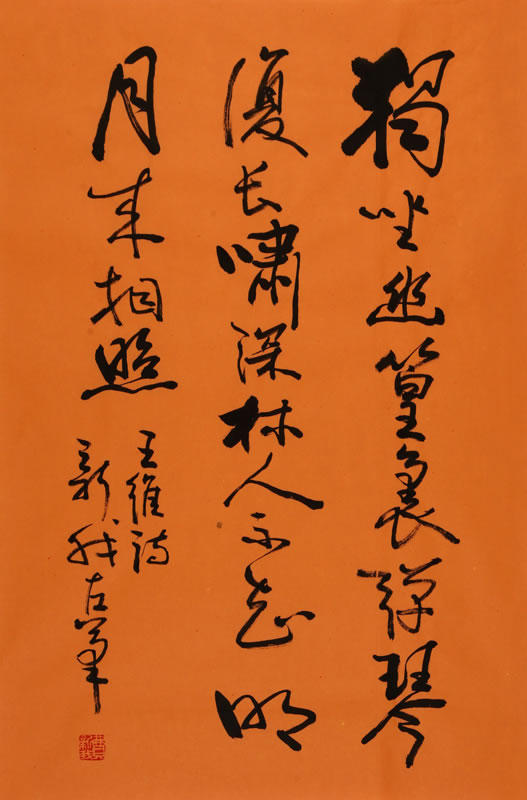 獨坐幽篁裏彈琴
復长嘯深林人不知明
月来相照
王維詩
新我左筆